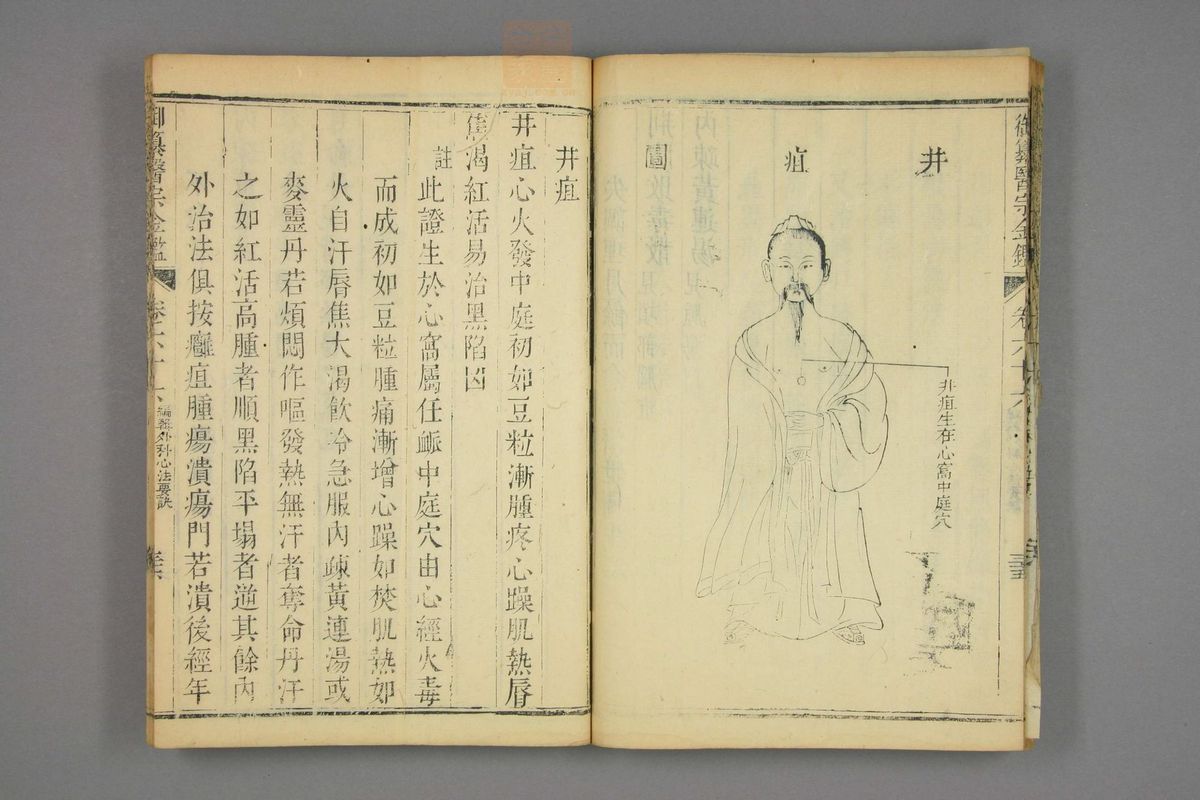 御纂醫宗金鑑
卷六十六
井
疽
圖
井疽生在心窩中庭穴
井疽
井疽心火發中庭初如豆粒漸腫疼心躁肌熱唇
焦渴紅活易治黑陷凶
註此證生於心窩屬任衇中庭穴由心經火毒
而成初如豆粒腫痛漸增心躁如焚肌熱如
火自汗唇焦大渴飲冷急服內疎黃連湯或
麥靈丹若煩悶作嘔發熱無汗者奪命丹汗
之如紅活高腫者順黑陷平塌者逆其餘內
外治法俱按癰疽腫瘍潰瘍門若潰後經年
御纂醫宗金鑑
卷六十六
編輯外科心法要訣